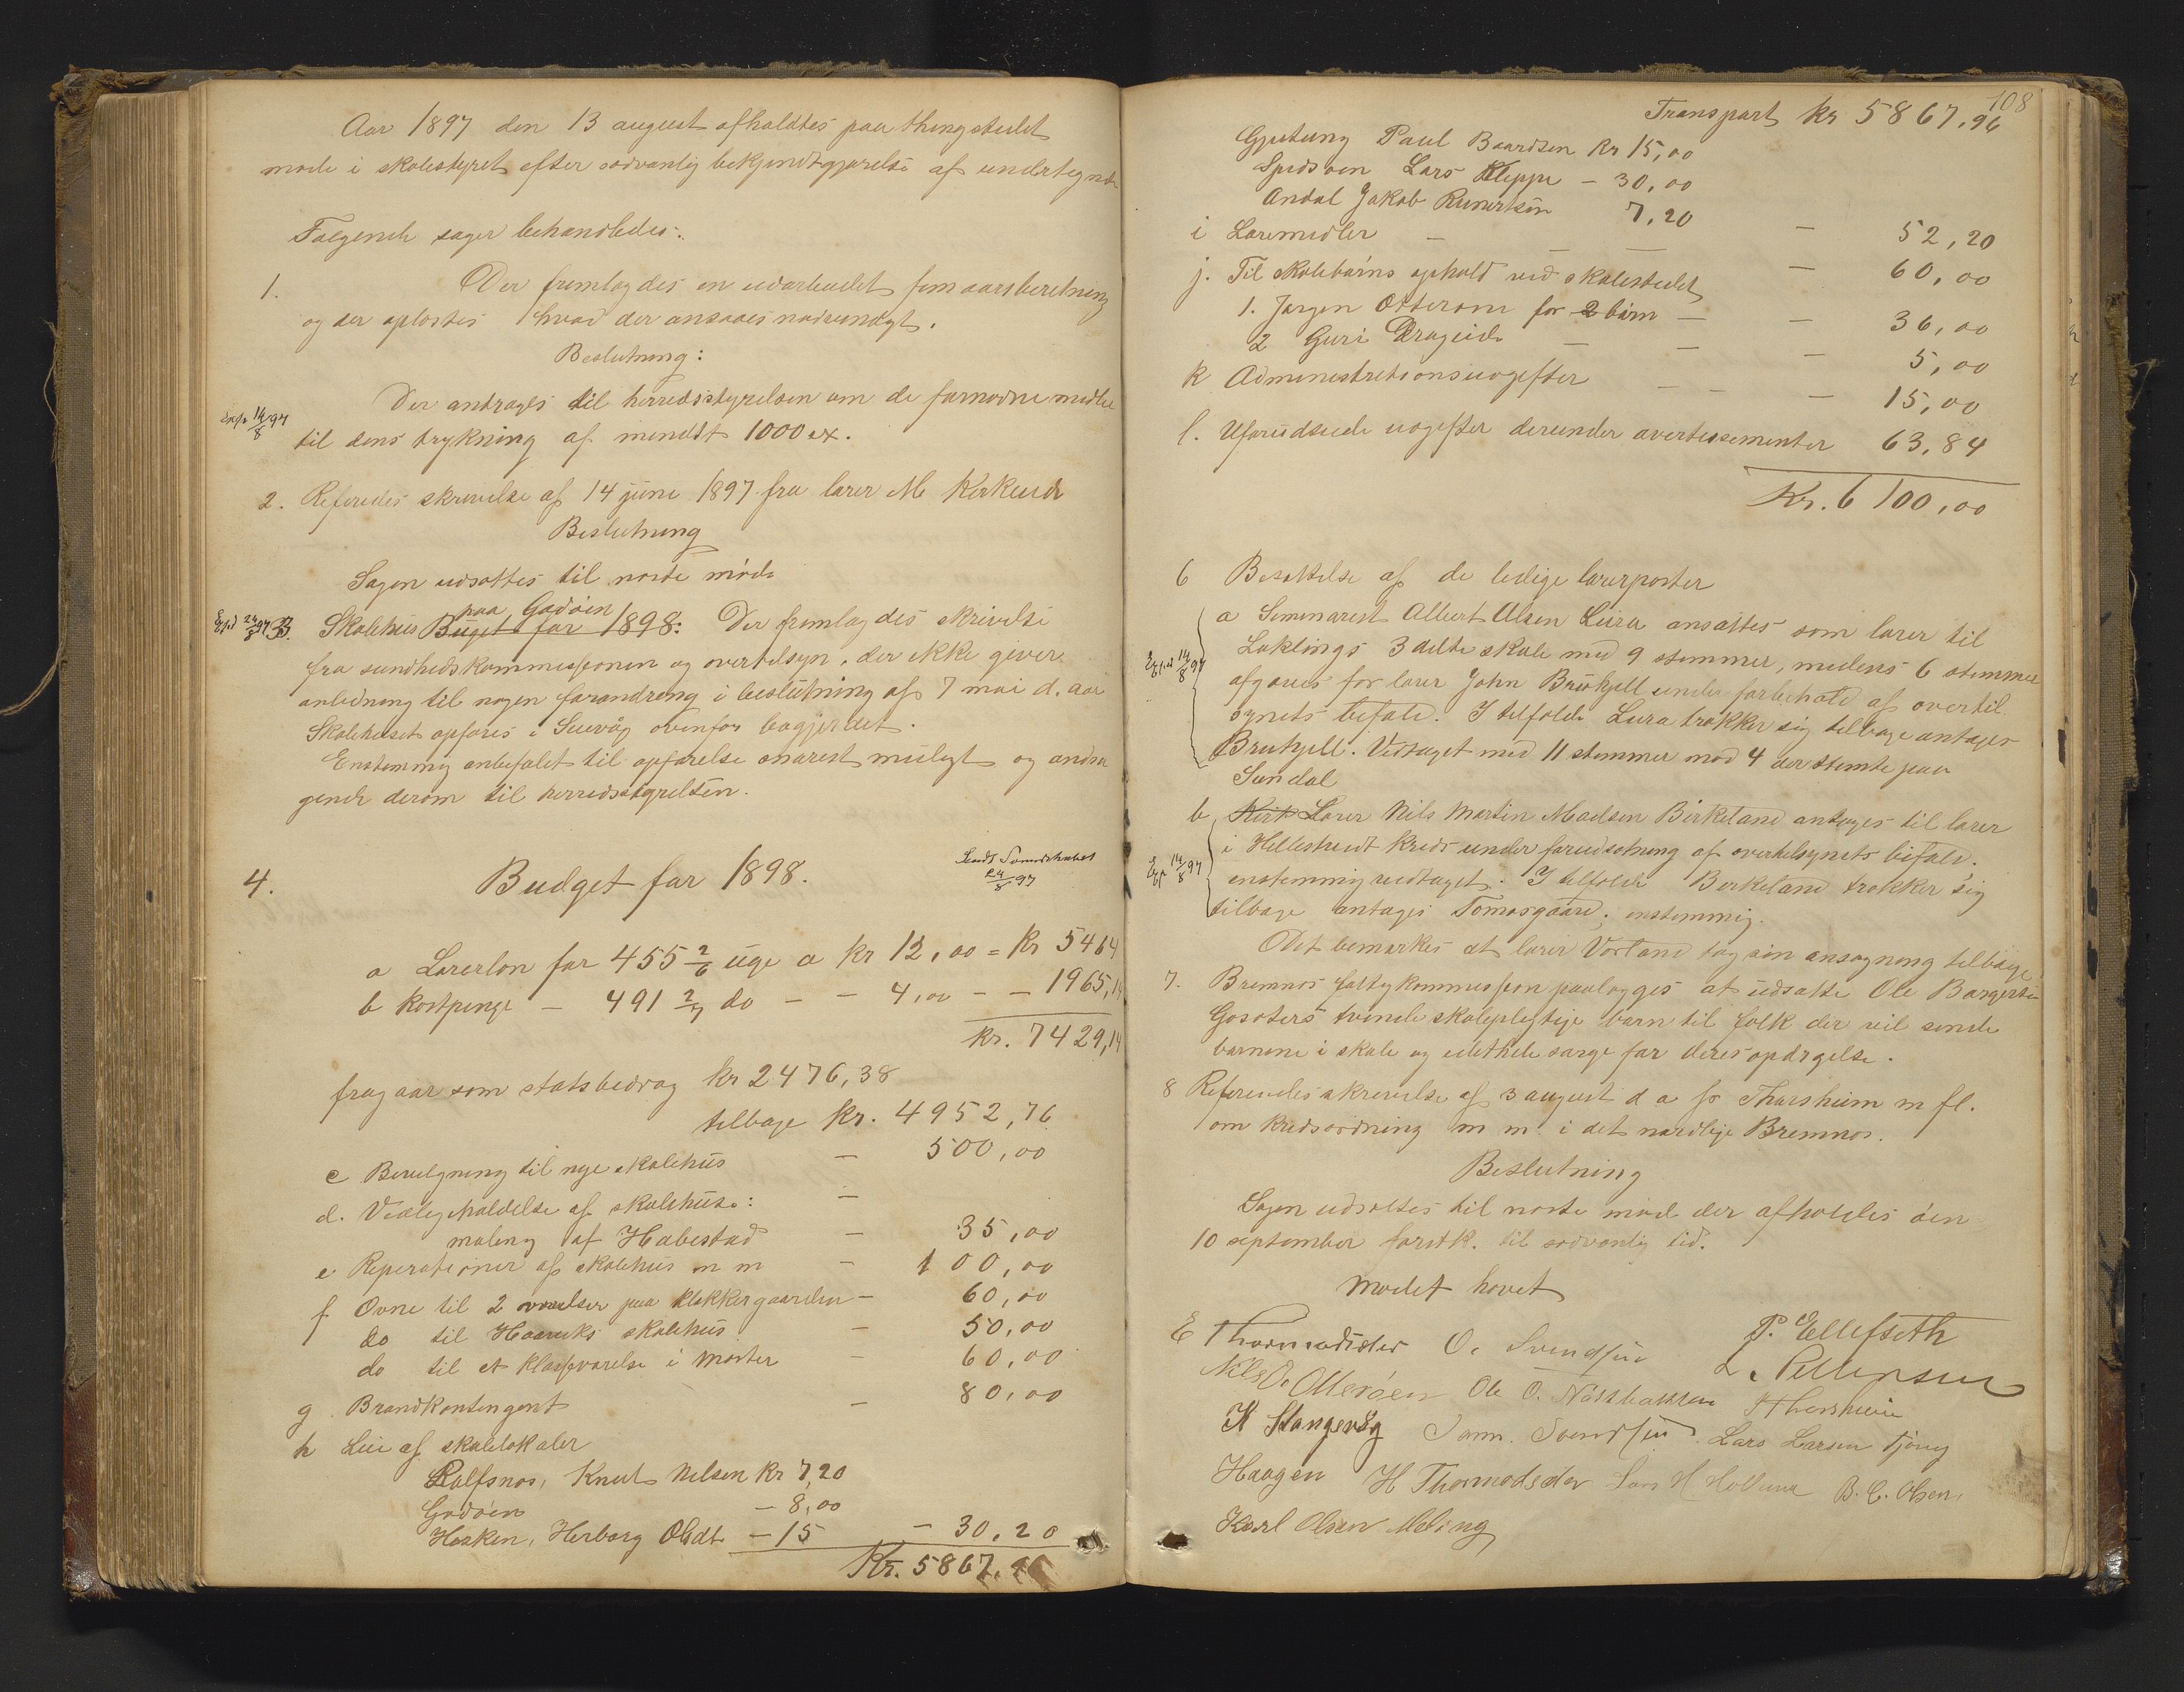 Aar 1897 den 13 august afholdtes paa thingstedet
møde i skolestyret efter sædvanlig bekjendtgjørelse af undertegnede
Følgende sager behandledes:
1. Der fremlagdes en udarbeidet femaarsberetning
og der oplæstes hvad der ansaaes nødvendigt.
Beslutning:
Der andrages til herredsstyrelsen om de fornødne midler
Exp. 14/8 97
til dens trykning af mindst 1000 ex.
2. Referedes skrivelse af 14 juni 1897 fra lærer M Kirkeide
Beslutning
Sagen udsættes til næste møde
paa Godøen
Exped 24/8 97 3. Skolehus Buget for 1898: Der fremlagdes skrivelse
fra sundhedskommissionen og overtilsyn, der ikke giver
anledning til nogen forandring i beslutning af 7 mai d. aar
Skolehuset opføres i Suevåg ovenfor bøgjerdet.
Enstemmig anbefalet til opførelse snarest muligt og andra
gende derom til herredsstyrelsen.
4. Budget for 1898.
Sendt Formandskabet
24/8 97
a Lærerløn for 455 2/6 uge a kr 12,00 = Kr 5464
b Kostpenge – 491 2/7 do – – 4,00 – – 1965,14
Kr. 7429,14
fragaar som statsbidrag kr 2476,38
tilbage Kr. 4952,76
c Bevilgning til nye skolehus – 500,00
d. Vedligeholdelse af skolehuse: –
maling af Habestad – 35,00
e Reperationer af skolehus m m – 100,00
f Ovne til 2 værelser paa klokkergaarden – 60,00
do til Haaviks skolehus – 50,00
do til et klasseværelse i Moster – 60,00
g. Brandkontingent – 80,00
h Leie af skolelokaler
Rolfsnæs, Knut Nilsen Kr 7,20
Godøen – 8,00
Hisken, Herborg Olsdt – 15 – 30,20
Kr. 5867,96
108
Transport Kr 5867,96
Gjetung Paul Baardsen Kr 15,00
Spidsøen Lars Kleppe – 30,00
Andal Jakob Reinertsen 7,20
– 52,20
i Læremidler – – – – 60,00
j. Til skolebørns ophold ved skolestedet
1. Jørgen Otterøen for 2 børn – – 36,00
2 Guri Drageide – – – 5,00
k Administrationsudgifter – – – 15,00
l. Uforudseede udgifter derunder avertissementer 63,84
Kr. 6100,00
6 Besættelse af de ledige lærerposter
a Seminarist Albert Olsen Leira ansættes som lærer til
Løklings 3 delte skole med 9 stemmer, medens 6 stemmer
Exped 14/8 97
afgaves for lærer John Brukjell under forbehold af overtil
synets bifald. I tilfælde Leira trækker sig tilbage antages
Brukjell. Vedtaget med 11 stemmer mod 4 der stemte paa
Sundal
b Kirk Lærer Nils Martin Madsen Birkeland antages til lærer
i Hellesundt Kreds under forudsætning af overtilsynets bifald.
Exp 14/8 97
enstemmig vedtaget. I tilfælde Birkeland trækker sig
tilbage antages Tomasgaard; enstemmig.
Det bemærkes at lærer Vorland tog sin ansøgning tilbage
7. Bremnes fattigkommission paalægges at udsætte Ole Børgesen
Gosæters tvende skolepligtige børn til folk der vil sende
børnene i skole og idethele sørge for deres opdragelse.
8 Refereredes skrivelse af 3 august d a fr Thorsheim m fl.
om kredsordning m m i det nordlige Bremnes.
Beslutning
Sagen udsættes til næste møde der afholdes den
10 september førstk. til sædvanlig tid.
Mødet hævet
E Thormodsæter O. Svendsen P. Ellefseth
Nils O. Otterøen Ole O. Nøkkbakken L. Pedersen
K Stangevåg Søren. Svendsen. Thorsheim
Lars Larsen Gjøvåg
Haagen H Thormodsæter B. C. Olsen,
Karl Olsen Meling